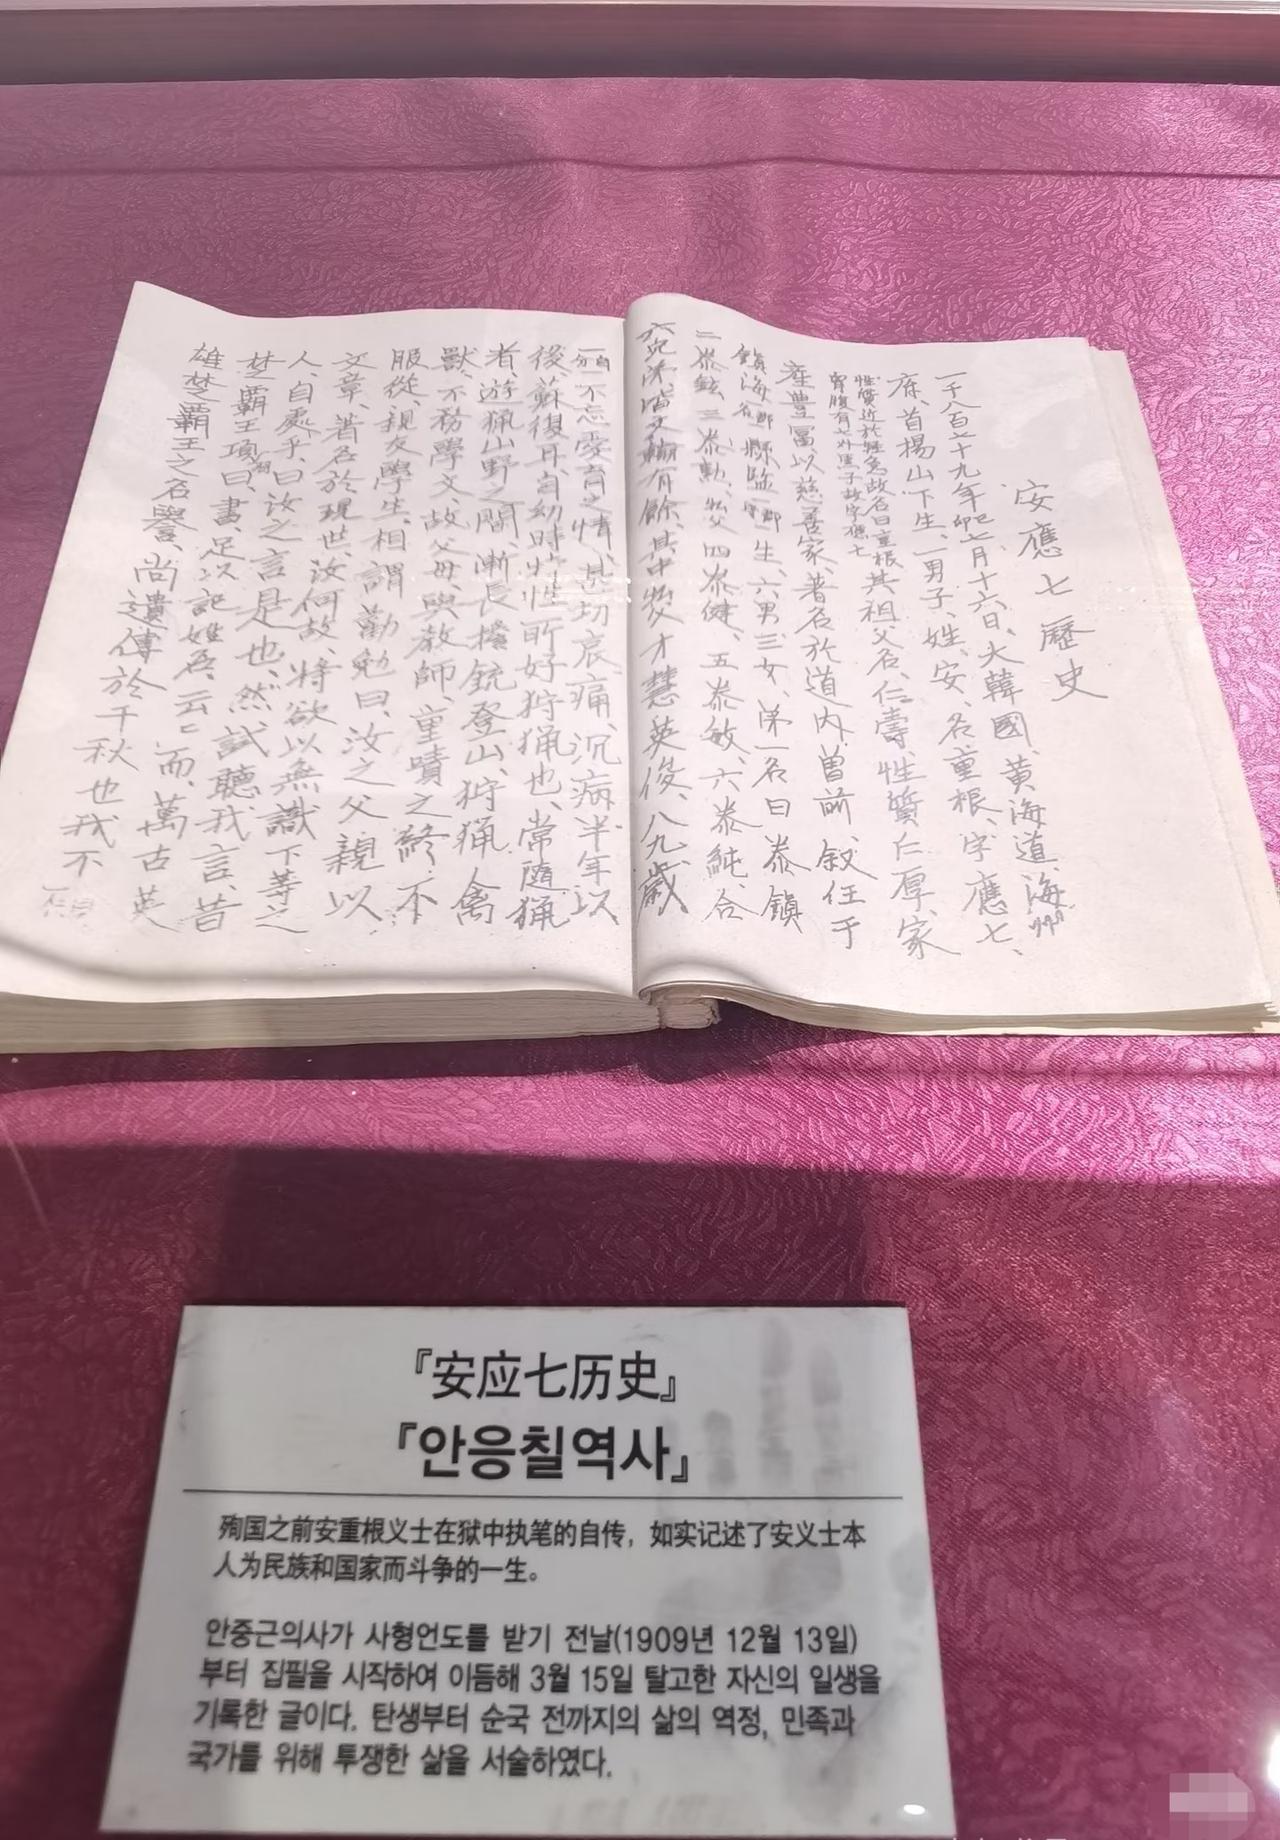 安應七歷史
一千八百七十九年己卯七月十六日、大韓國、黃海道、海州
府、首楊山下生、一男子、姓、安、名重根、字應七、
性質近於輕急故名曰重根
胷腹有七介黑子故字應七
其祖父名、仁壽、性質仁厚、家
產豊富、以慈善家、著名於道內、曾前、叙任于
鎮海郡縣監 生、六男三女、第一名曰泰鎮
二泰鉉、三泰勳、父 四泰健、五泰敏、六泰純、合
六兄弟、皆文翰有餘、其中父才慧英俊、八九歲、
不忘愛育之情、甚切哀痛、沉病半年以
後、蘇復耳、自幼時特性所好狩獵也、常隨獵
者、遊獵山野之間、漸長擔銃登山、狩獵禽
獸、不務學文、故父母與敎師、重嘖之、終不
服從、親友學生、相謂勸勉曰、汝之父親以
文章、著名於現世、汝何故、將欲以無識下等之
人、自處乎、曰汝之言是也、然試聽我言、昔
楚覇王項羽曰、書、足以記姓名、云云而、萬古英
雄楚覇王之名譽、尚遺傳於千秋也、我不
『安应七历史』
『안응칠역사』
殉国之前安重根义士在狱中执笔的自传，如实记述了安义士本
人为民族和国家而斗争的一生。
안중근의사가 사형언도를 받기 전날(1909년 12월 13일)
부터 집필을 시작하여 이듬해 3월 15일 탈고한 자신의 일생을
기록한 글이다. 탄생부터 순국 전까지의 삶의 역정, 민족과
국가를 위해 투쟁한 삶을 서술하였다.